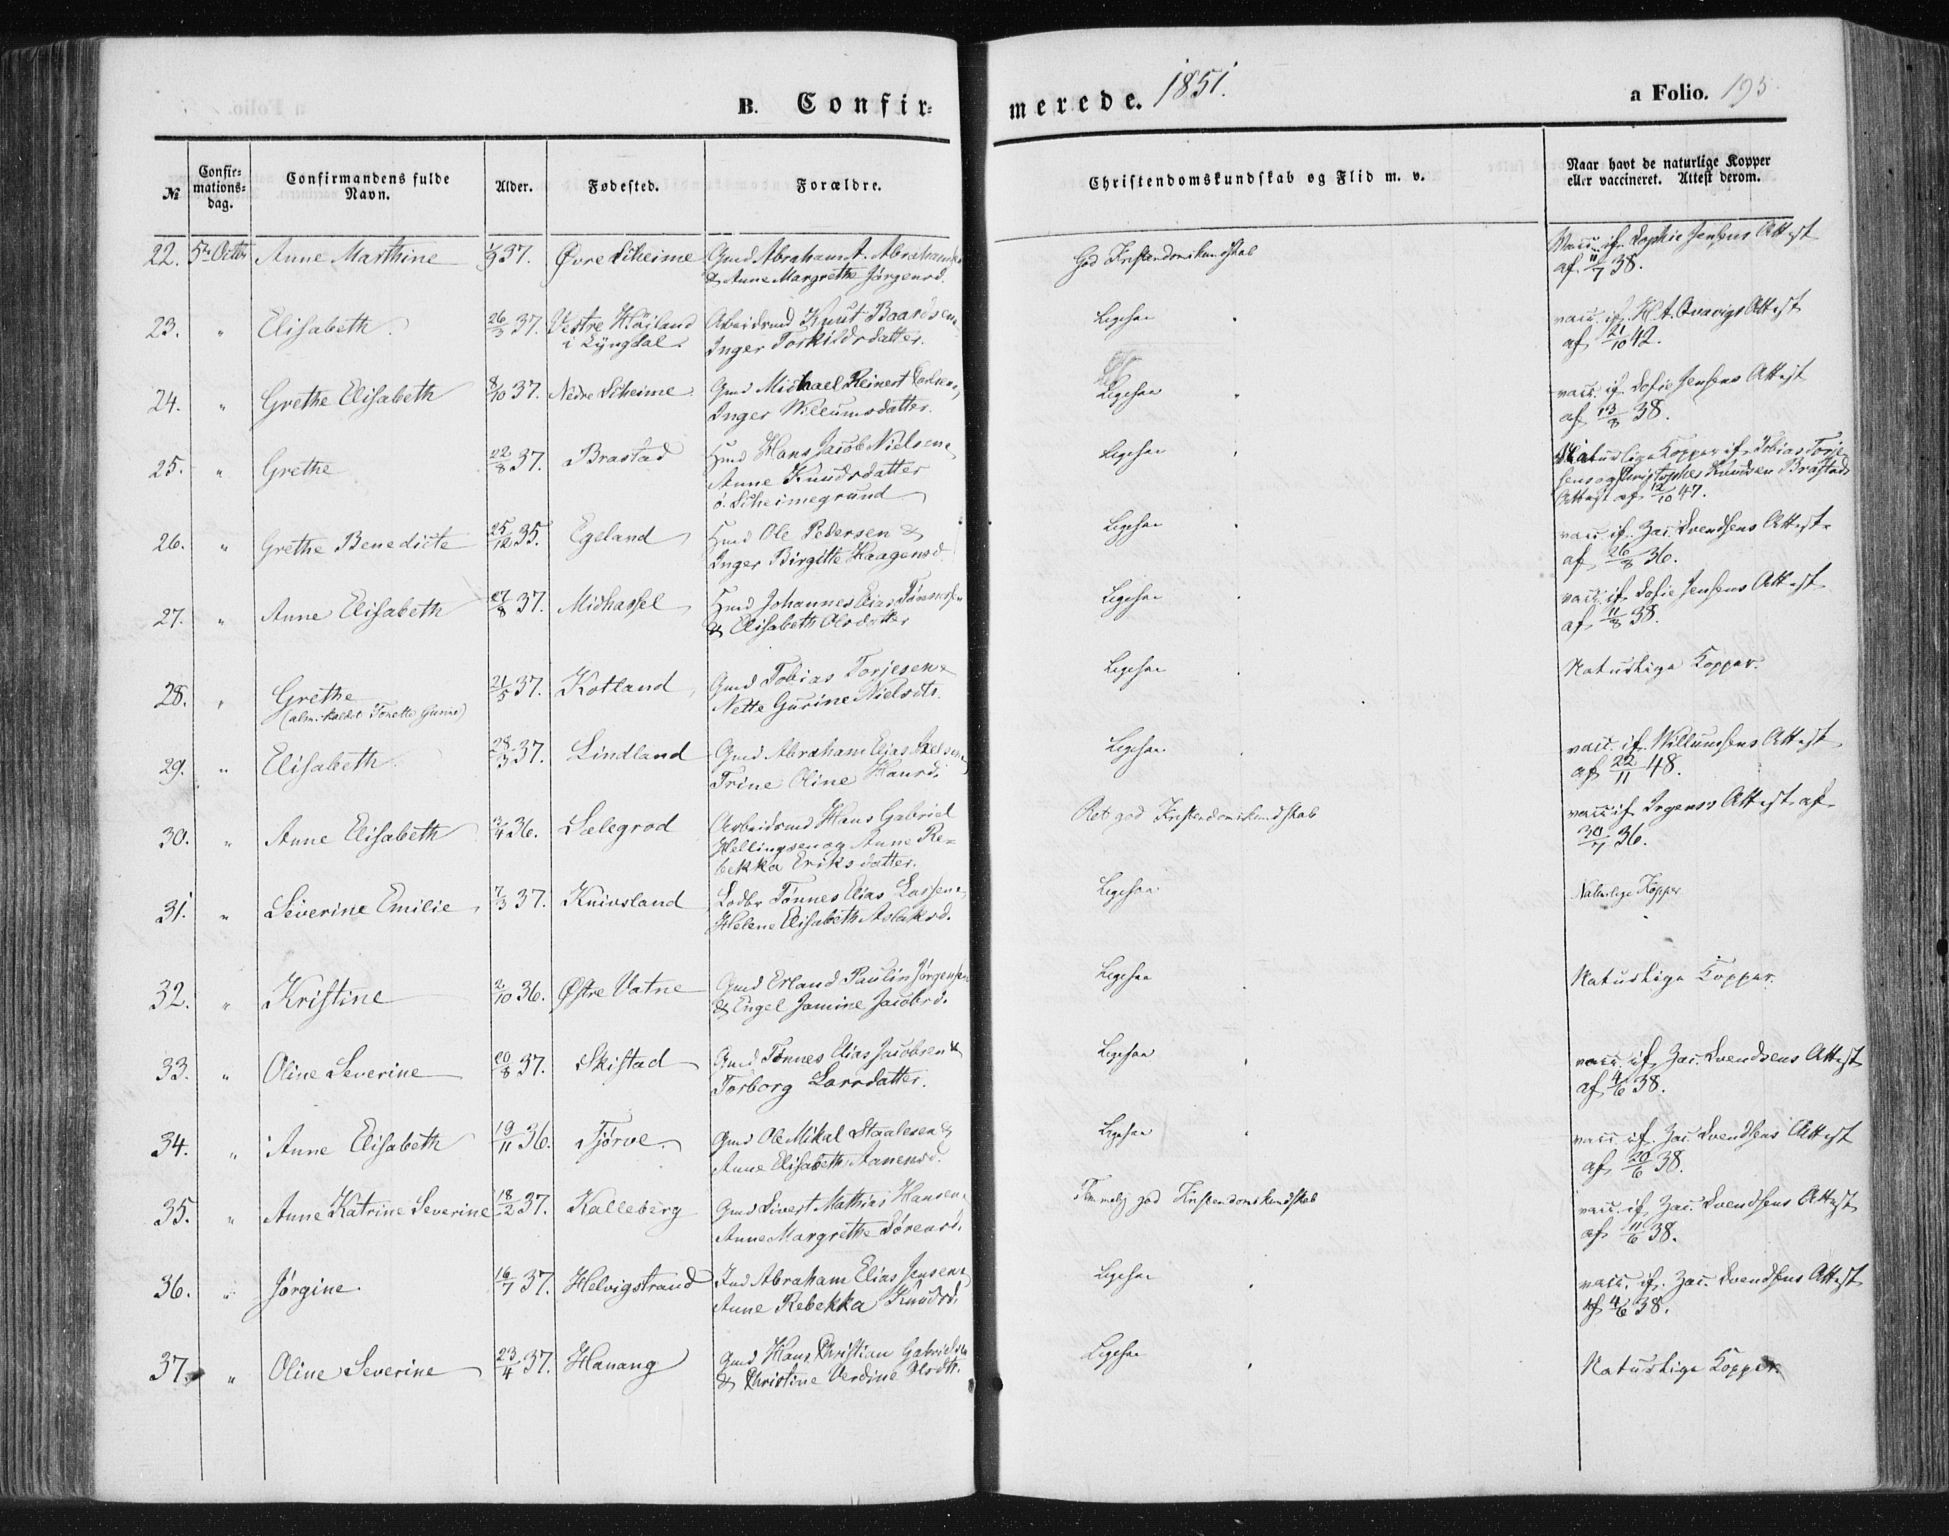 B. Confir-
merede. 1851.
a Folio. 195.
№
Confir-
mations-
dag.
Confirmandens fulde
Navn.
Alder.
Fødested.
Forældre.
Christendomskundskab og Flid m. v.
Naar havt de naturlige Kopper
eller vaccineret. Attest derom.
22. 5te Octbr Anne Marthine 37. Øvre Liheime Gmd Abraham A. Abrahams
& Anne Margrethe Jørgensd. God Kristendomskundskab Vacc. if. Sophie Jensens Attest
af 11/7 38.
23. " Elisabeth 26/3 37. Vestre Høiland Arbeidsmd Knut Baardsen
i Lyngdal. Inger Torkildsdatter. Ligesaa vacc. if. H. A. Qvavigs Attest
af 21/10 42.
24. " Grethe Elisabeth 8/10 37. Nedre Liheime Gmd Michael Reinert
Inger Willumsdatter. Ligesaa " vacc. if. Sofie Jensens Attest
af 13/8 38.
25. " Grethe 22/8 37. Brastad Hmd Hans Jacob Nielsen
Anne Knudsdatter
ø. Liheimegrund Ligesaa Naturlige Kopper if. Tobias Torje-
sens og Christopher Knudsen Brastads
Attest af 12/10 47.
26. " Grethe Benedicte 25/12 35. Egeland Hmd Ole Pedersen &
Inger Birgitte Haagensd. Ligesaa vacc. if. Zac. Svendsens Attest
af 26/8 36.
27. " Anne Elisabeth 27/8 37. Midhassel Hmd Johannes Elias Tønnesen
& Elisabeth Olsdatter Ligesaa vacc. if. Sofie Jensens Attest
af 11/8 38.
28. " Grethe 21/5 37. Kotland Gmd Tobias Torjesen &
(alm. kaldet Tonette Gurine) Nette Gurine Nielsdtr. Ligesaa Naturlige Kopper.
29. " Elisabeth 28/3 37. Lindland Gmd Abraham Elias Axelsen
Trine Oline Hansd. Ligesaa vacc. if. Willumsens Attest
af 22/11 48.
30. " Anne Elisabeth 36. Sælegrod Arbeidsmd Hans Gabriel
Hellingsen og Anne Re-
bekka Eriksdatter. Ret god Kristendomskundskab vacc if. Irgens's Attest af
30/7 36.
31. " Severine Emilie 7/3 37. Knivsland Lodbr Tønnes Elias Lassen
Helene Elisabeth Aslaksd. Ligesaa Naturlige Kopper
32. " Kristine 2/10 36. Østre Vatne Gmd Erland Paulin Jørgensen
& Engel Jamine Jacobsd. Ligesaa Naturlige Kopper.
33. " Oline Severine 20/8 37. Skistad Gmd Tønnes Elias Jacobsen &
Torborg Larsdatter. Ligesaa vacc. if. Zac. Svendsens Attest
af 4/6 38.
34. " Anne Elisabeth 19/11 36. Tjørve Gmd Ole Mikal Staalesen &
Anne Elisabeth Aanensd. Ligesaa vacc. if. Zac. Svendsens Attest
af 20/6 38.
35. " Anne Katrine Severine 18/2 37. Kalleberg Gmd Sivert Mathias Hansen
Anne Margrethe Sørensd. Temmelig god Kristendomskundskab vacc. if. Zac. Svendsens Attest
af 11/6 38.
36. " Jørgine 16/7 37. Helvigstrand Ind Abraham Elias Jensen
Anne Rebekka Knudsd. Ligesaa vacc. if. Zac. Svendsens Attest
af 4/6 38.
37. " Oline Severine 23/4 37. Hanang Gmd Hans Christian Gabrielsen
& Christine Verdine Olsdtr. Ligesaa Naturlige Kopper.